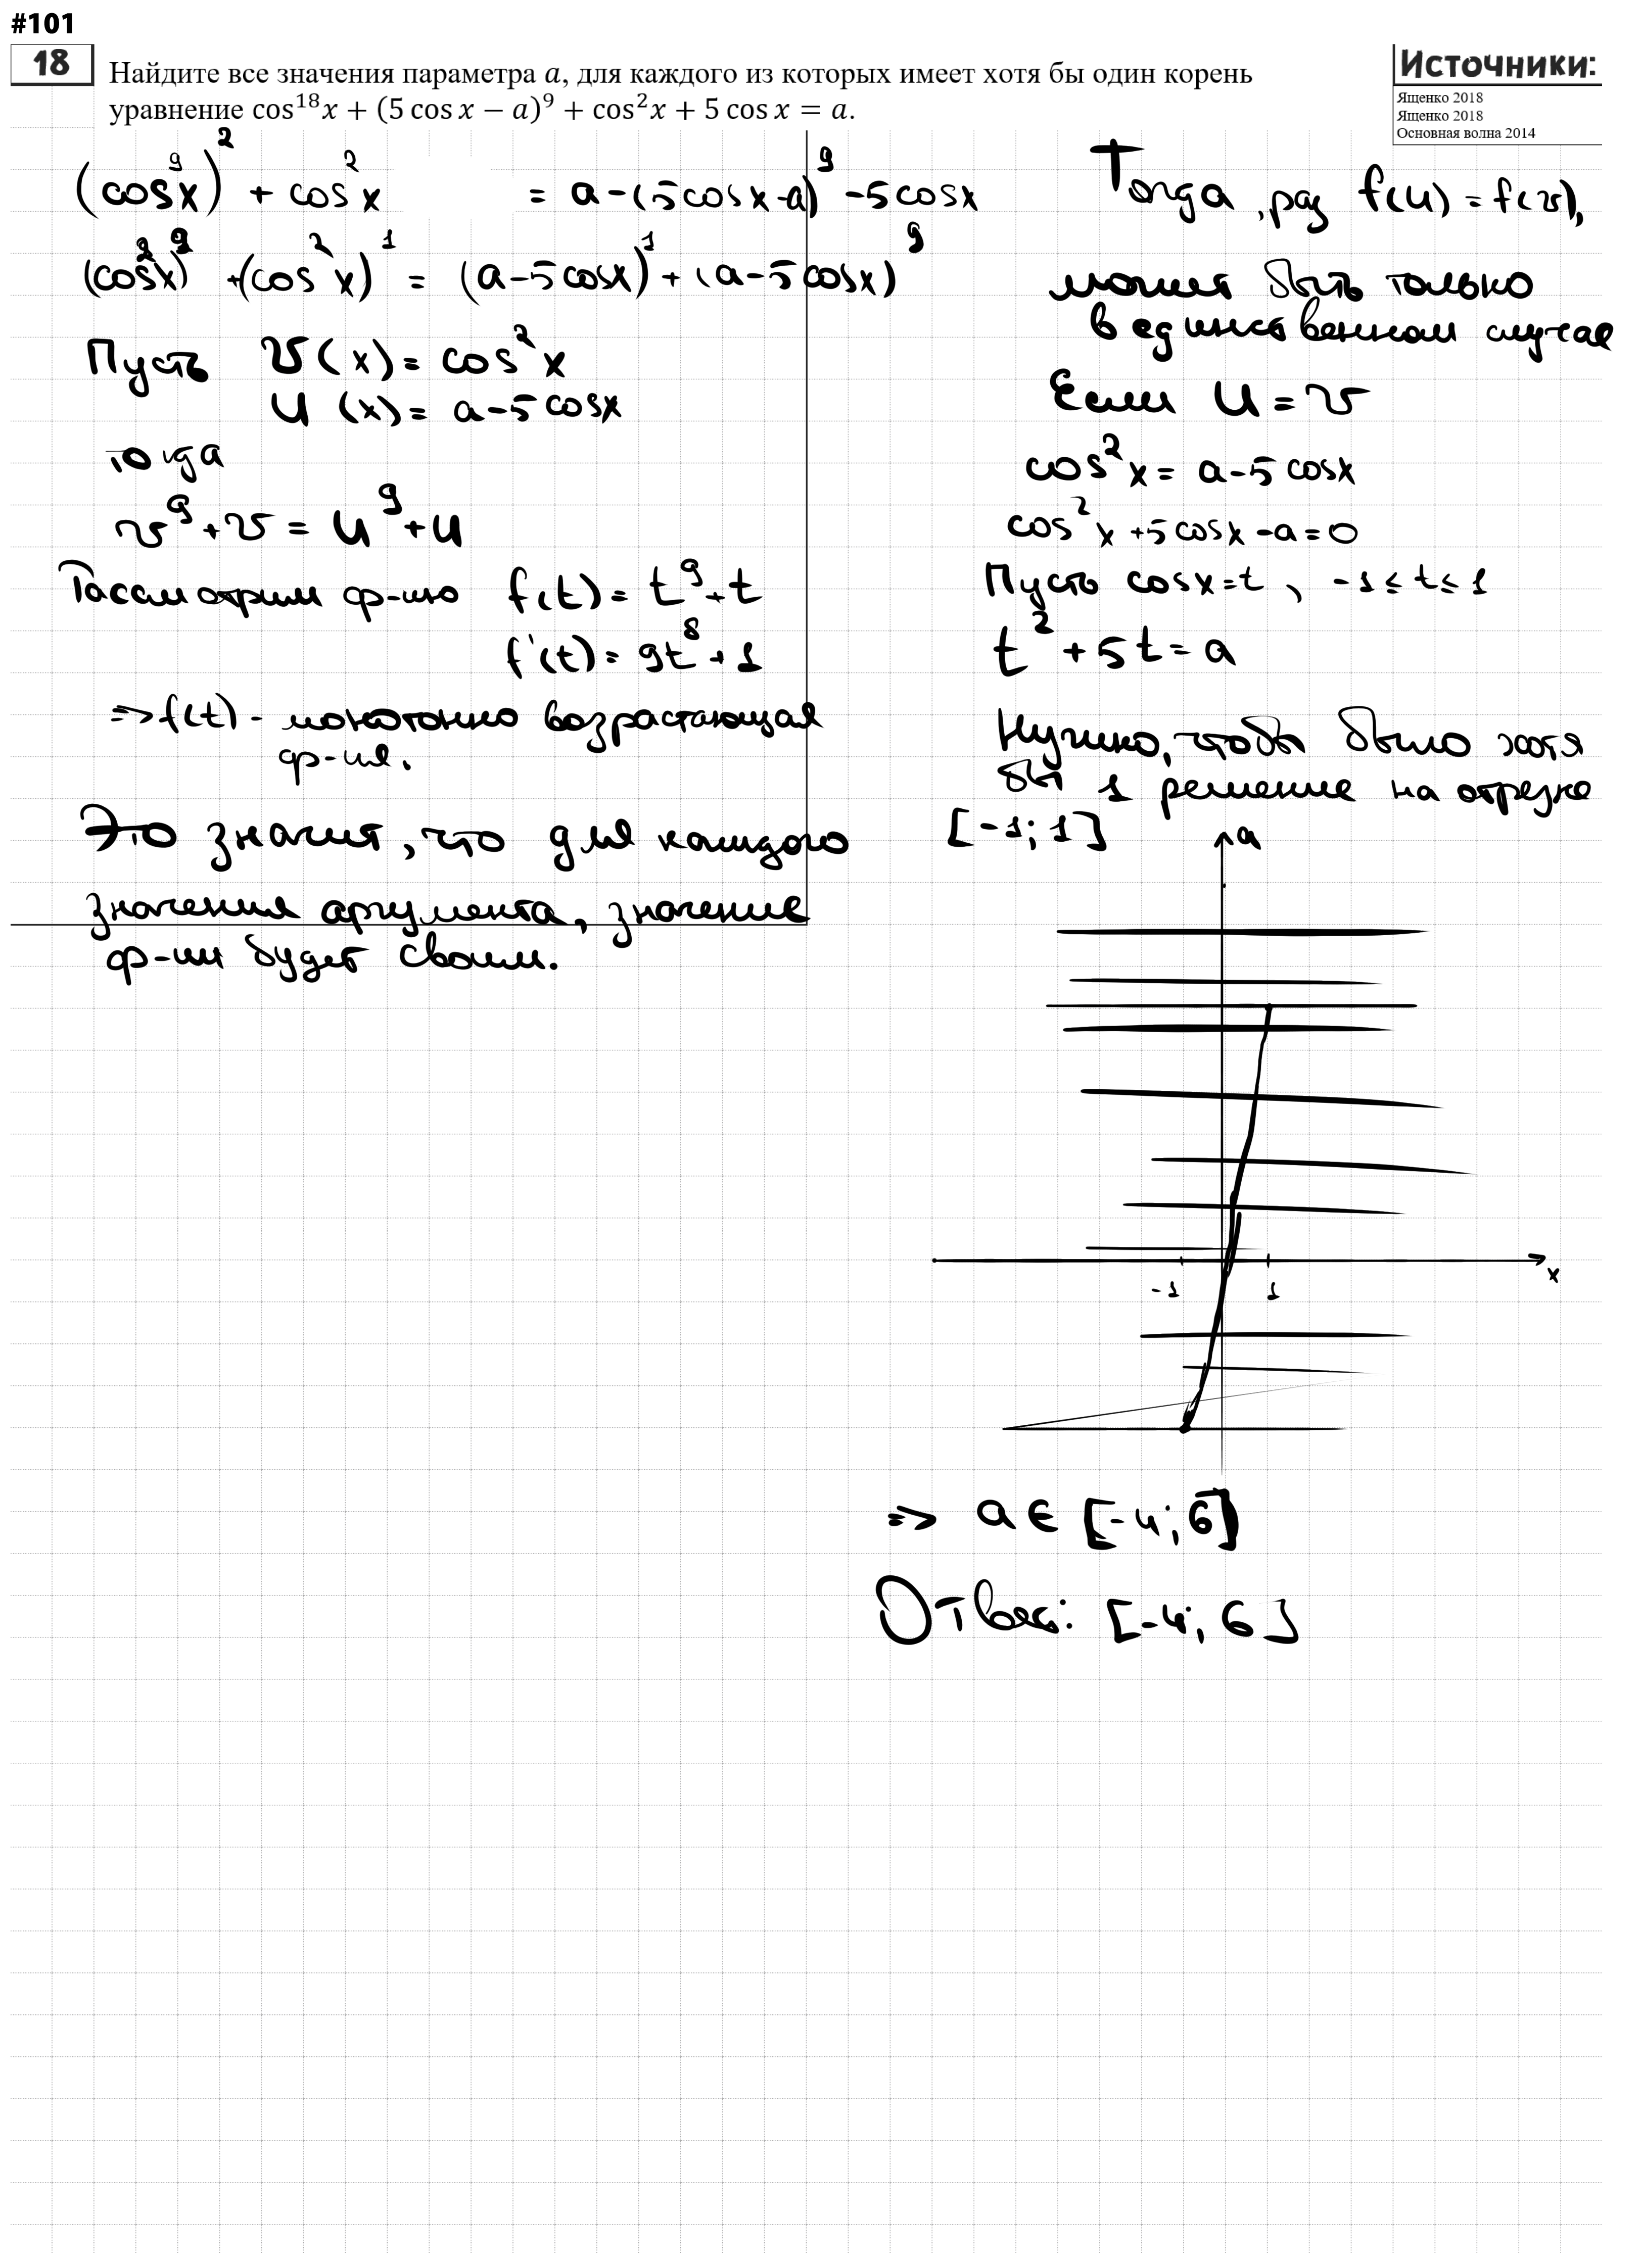 #101
18
Найдите все значения параметра a, для каждого из которых имеет хотя бы один корень
уравнение cos¹⁸x + (5 cos x − a)⁹ + cos²x + 5 cos x = a.
Источники:
Ященко 2018
Ященко 2018
Основная волна 2014
(cos⁹x)² + cos²x = a-(5cosx-a)⁹ -5cosx
(cos²x)⁹ +(cos²x)¹ = (a-5cosx)¹ + (a-5cosx)⁹
Пусть v(x) = cos²x
u(x) = a-5cosx
тогда
v⁹+v = u⁹+u
Рассмотрим ф-ию f(t) = t⁹+t
f'(t) = 9t⁸+1
=> f(t) - монотонно возрастающая
ф-ия.
Это значит, что для каждого
значения аргумента, значение
ф-ии будет своим.
Тогда, раз f(u) = f(v),
может быть только
в единственном случае
Если u = v
cos²x = a-5cosx
cos²x +5cosx -a=0
Пусть cosx=t , -1≤t≤1
t²+5t=a
Нужно, чтобы было хотя
бы 1 решение на отрезке
[-1; 1]
a
x
-1 1
=> a ∈ [-4; 6]
Ответ: [-4; 6]